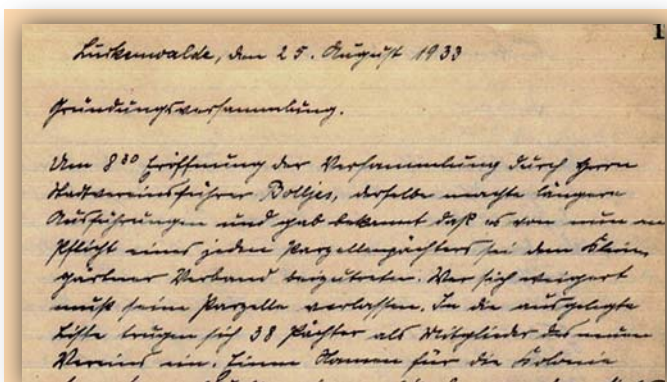 1
Luckenwalde, den 25. August 1933
Gründungsversammlung.
Um 8³⁰ Eröffnung der Versammlung durch Herrn
Stadtvereinsführer Boltjes, derselbe machte längere
Ausführungen und gab bekannt daß es von nun an
Pflicht eines jeden Parzellenpächters sei dem Klein,
gärtner Verband beizutreten. Wer sich weigert
muß seine Parzelle verlassen. In die ausgelegte
Liste trugen sich 38 Pächter als Mitglieder des neuen
Vereins ein. Einen Namen für die Kolonie